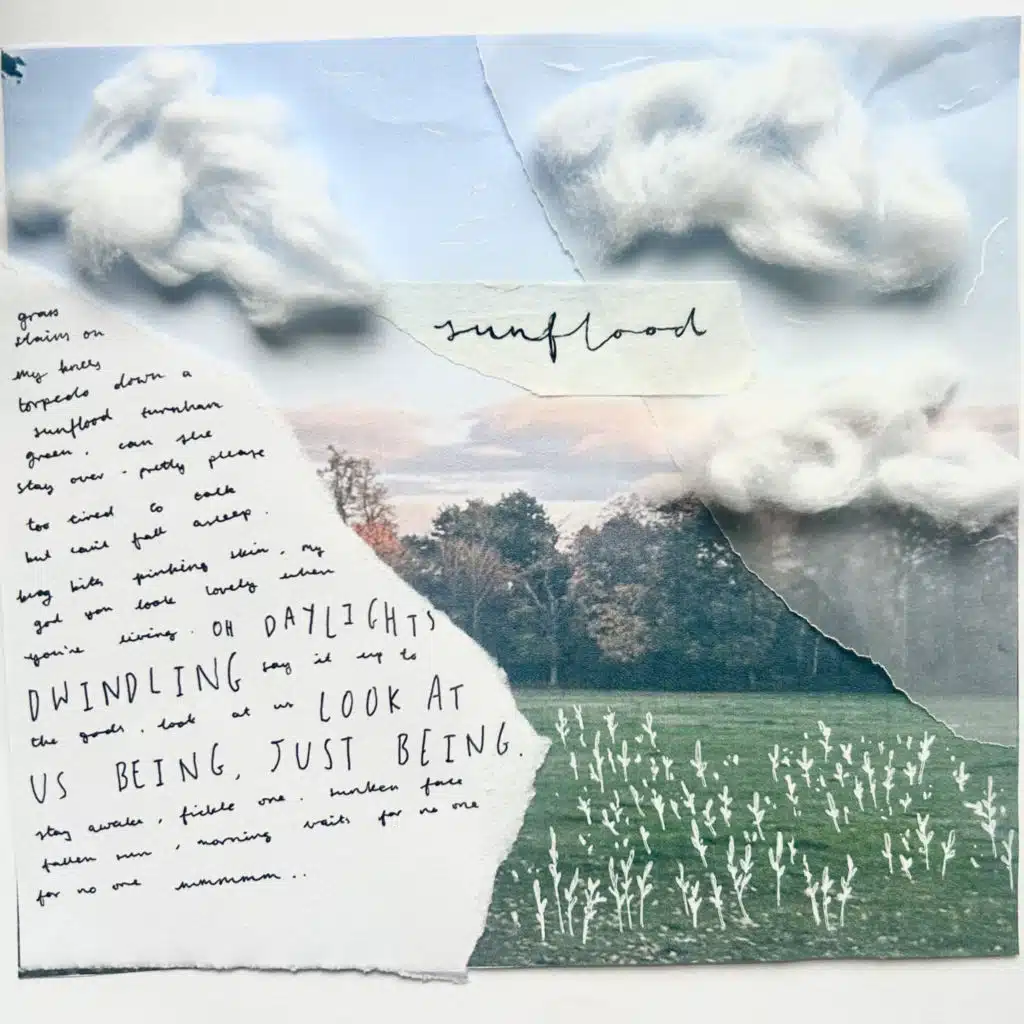 sunflood
grass
stains on
my knees
torpedo down a
sunflood turnham
green. can she
stay over - pretty please
too tired to talk
but can't fall asleep.
bug bits pinking skin. my
god you look lovely when
you're living. OH DAYLIGHTS
DWINDLING say it up to
the gods. look at us LOOK AT
US BEING, JUST BEING.
stay awake, fickle one. sunken face
fallen sun, morning waits for no one
for no one mmmmmm..